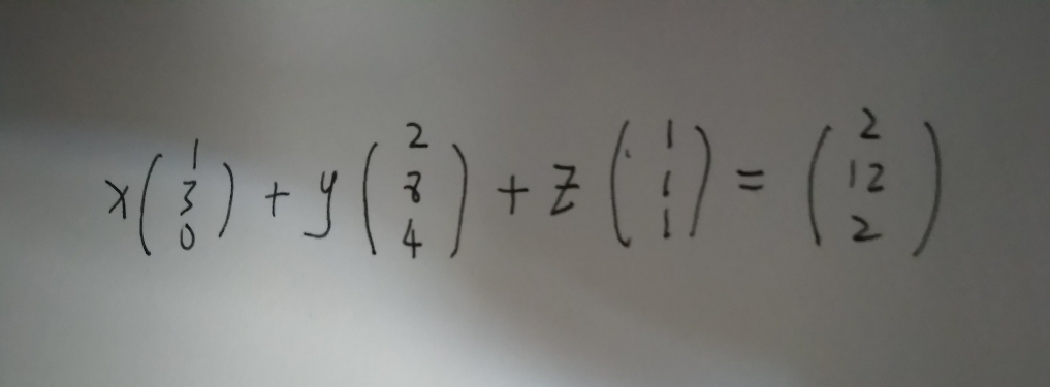 x(1 3 0) + y(2 8 4) + z(1 1 1) = (2 12 2)